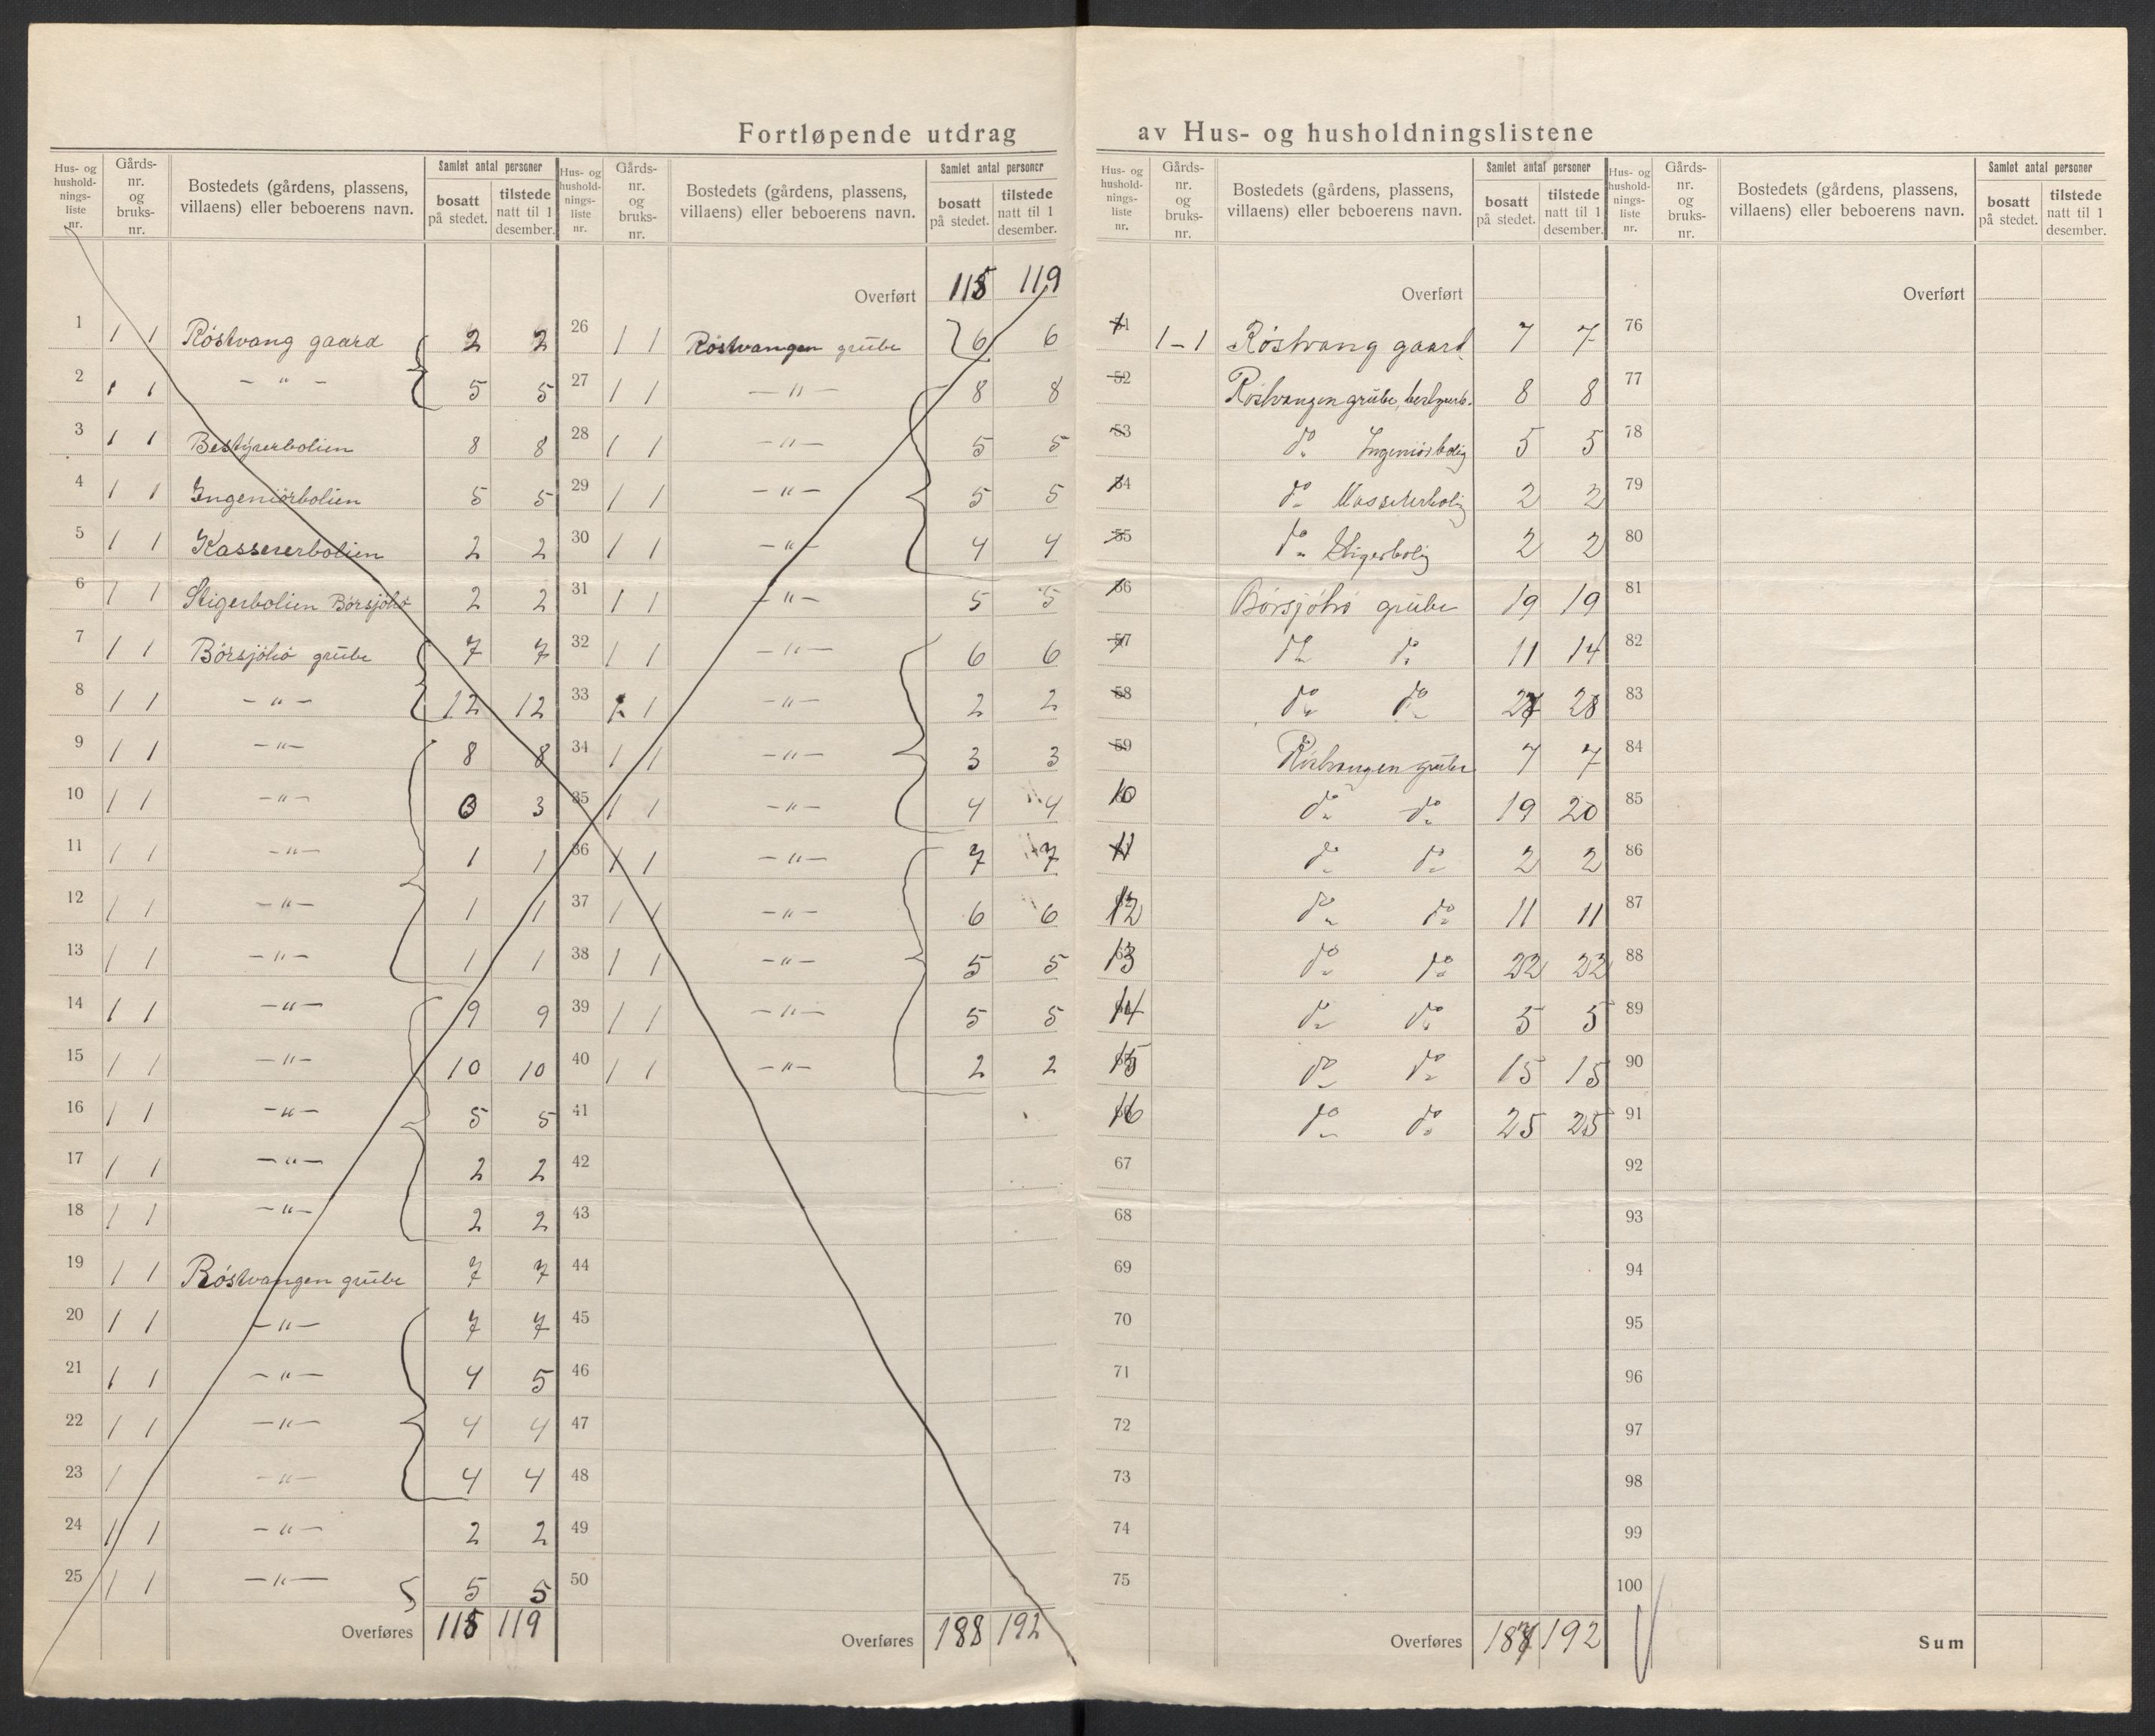 Fortløpende utdrag av Hus- og husholdningslistene
Hus- og hushold-nings-liste nr. | Gårds-nr. og bruks-nr. | Bostedets (gårdens, plassens, villaens) eller beboerens navn. | Samlet antal personer | bosatt på stedet. | tilstede natt til 1 desember.
1 | 1 1 | Röstvang gaard | 2 | 2
2 | 1 1 | - " - | 5 | 5
3 | 1 1 | Bestÿrerbolien | 8 | 8
4 | 1 1 | Ingeniörbolien | 5 | 5
5 | 1 1 | Kassererbolien | 2 | 2
6 | 1 1 | Stigerbolien Börsjöhö | 2 | 2
7 | 1 1 | Börsjöhö grübe | 7 | 7
8 | 1 1 | - " - | 12 | 12
9 | 1 1 | - " - | 8 | 8
10 | 1 1 | - " - | 3 | 3
11 | 1 1 | - " - | 1 | 1
12 | 1 1 | - " - | 1 | 1
13 | 1 1 | - " - | 1 | 1
14 | 1 1 | - " - | 9 | 9
15 | 1 1 | - " - | 10 | 10
16 | 1 1 | - " - | 5 | 5
17 | 1 1 | - " - | 2 | 2
18 | 1 1 | - " - | 2 | 2
19 | 1 1 | Röstvangen grübe | 7 | 7
20 | 1 1 | - " - | 7 | 7
21 | 1 1 | - " - | 4 | 5
22 | 1 1 | - " - | 4 | 4
23 | 1 | - " - | 4 | 4
24 | 1 1 | - " - | 2 | 2
25 | 1 1 | - " - 5 | 5 | 5
Overføres | 118 | 119
Hus- og hushold-nings-liste nr. | Gårds-nr. og bruks-nr. | Bostedets (gårdens, plassens, villaens) eller beboerens navn. | Samlet antal personer | bosatt på stedet. | tilstede natt til 1 desember.
Overført | 115 | 119
26 | 1 1 | Röstvangen grübe | 6 | 6
27 | 1 1 | - " - | 8 | 8
28 | 1 1 | - " - | 5 | 5
29 | 1 1 | - " - | 5 | 5
30 | 1 1 | - " - | 4 | 4
31 | 1 1 | - " - | 5 | 5
32 | 1 1 | - " - | 6 | 6
33 | 1 1 | - " - | 2 | 2
34 | 1 1 | - " - | 3 | 3
35 | 1 1 | - " - | 4 | 4
36 | 1 1 | - " - | 7 | 7
37 | 1 1 | - " - | 6 | 6
38 | 1 1 | - " - | 5 | 5
39 | 1 1 | - " - | 5 | 5
40 | 1 1 | - " - | 2 | 2
41
42
43
44
45
46
47
48
49
50
Overføres | 188 | 192
Hus- og hushold-nings-liste nr. | Gårds-nr. og bruks-nr. | Bostedets (gårdens, plassens, villaens) eller beboerens navn. | Samlet antal personer | bosatt på stedet. | tilstede natt til 1 desember.
Overført
51 | 1-1 | Röstvang gaard | 7 | 7
52 | Röstvangen grübe, | 8 | 8
53 | do Ingeniörbolig | 5 | 5
54 | do Kassererbolig | 2 | 2
55 | do Stigerbolig | 2 | 2
56 | Börsjöhö grübe | 19 | 19
57 | do do | 11 | 14
58 | do do | 27 | 28
59 | Röstvangen grübe | 7 | 7
10 | do do | 19 | 20
11 | do do | 2 | 2
12 | do do | 11 | 11
13 | do do | 22 | 22
14 | do do | 5 | 5
15 | do do | 15 | 15
16 | do do | 25 | 25
67
68
69
70
71
72
73
74
75
Overføres | 187 | 192
Hus- og hushold-nings-liste nr. | Gårds-nr. og bruks-nr. | Bostedets (gårdens, plassens, villaens) eller beboerens navn. | Samlet antal personer | bosatt på stedet. | tilstede natt til 1 desember.
Overført
76
77
78
79
80
81
82
83
84
85
86
87
88
89
90
91
92
93
94
95
96
97
98
99
100
Sum